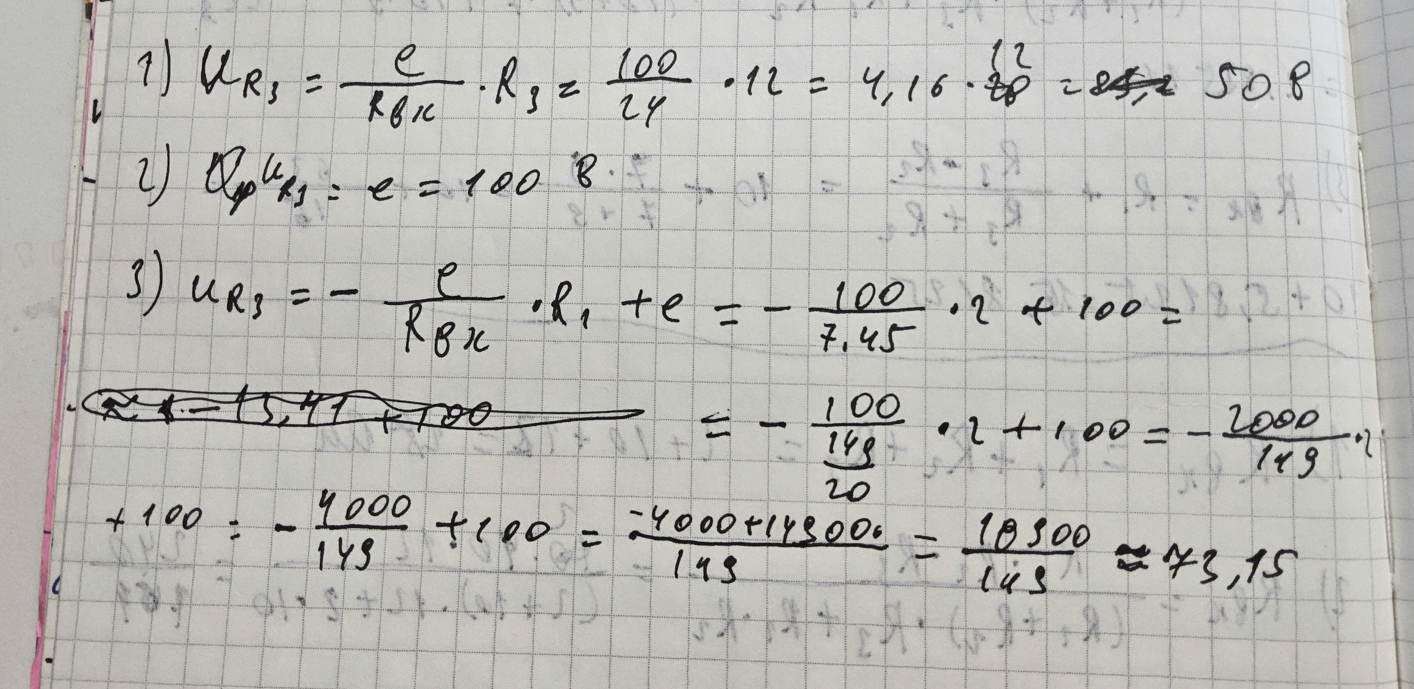 1) U R3 = e / Rвх · R3 = 100 / 24 · 12 = 4,16 · 12 = 50 В
2) U R3 = e = 100 В
3) U R3 = - e / Rвх · R1 + e = - 100 / 7.45 · 2 + 100 =
= - 100 / (149 / 20) · 2 + 100 = - 2000 / 149 · 2
+ 100 = - 4000 / 149 + 100 = -4000+14900 / 149 = 10900 / 149 ≈ 73,15